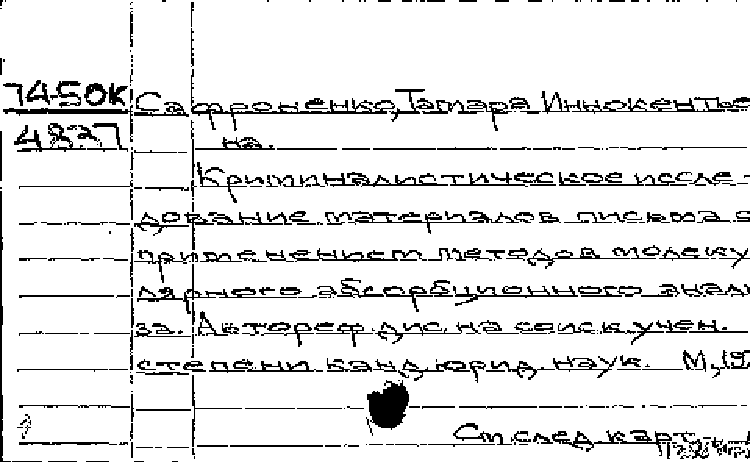 7450к Сафроненко, Тамара Иннокентье
4827 на.
Криминалистическое иссле-
дование материалов письма с
применением методов молеку
лярного абсорбционного анали
за. Автореф. дис. на соиск. учен.
степени канд. юрид. наук. М., 19
См. след. карт.